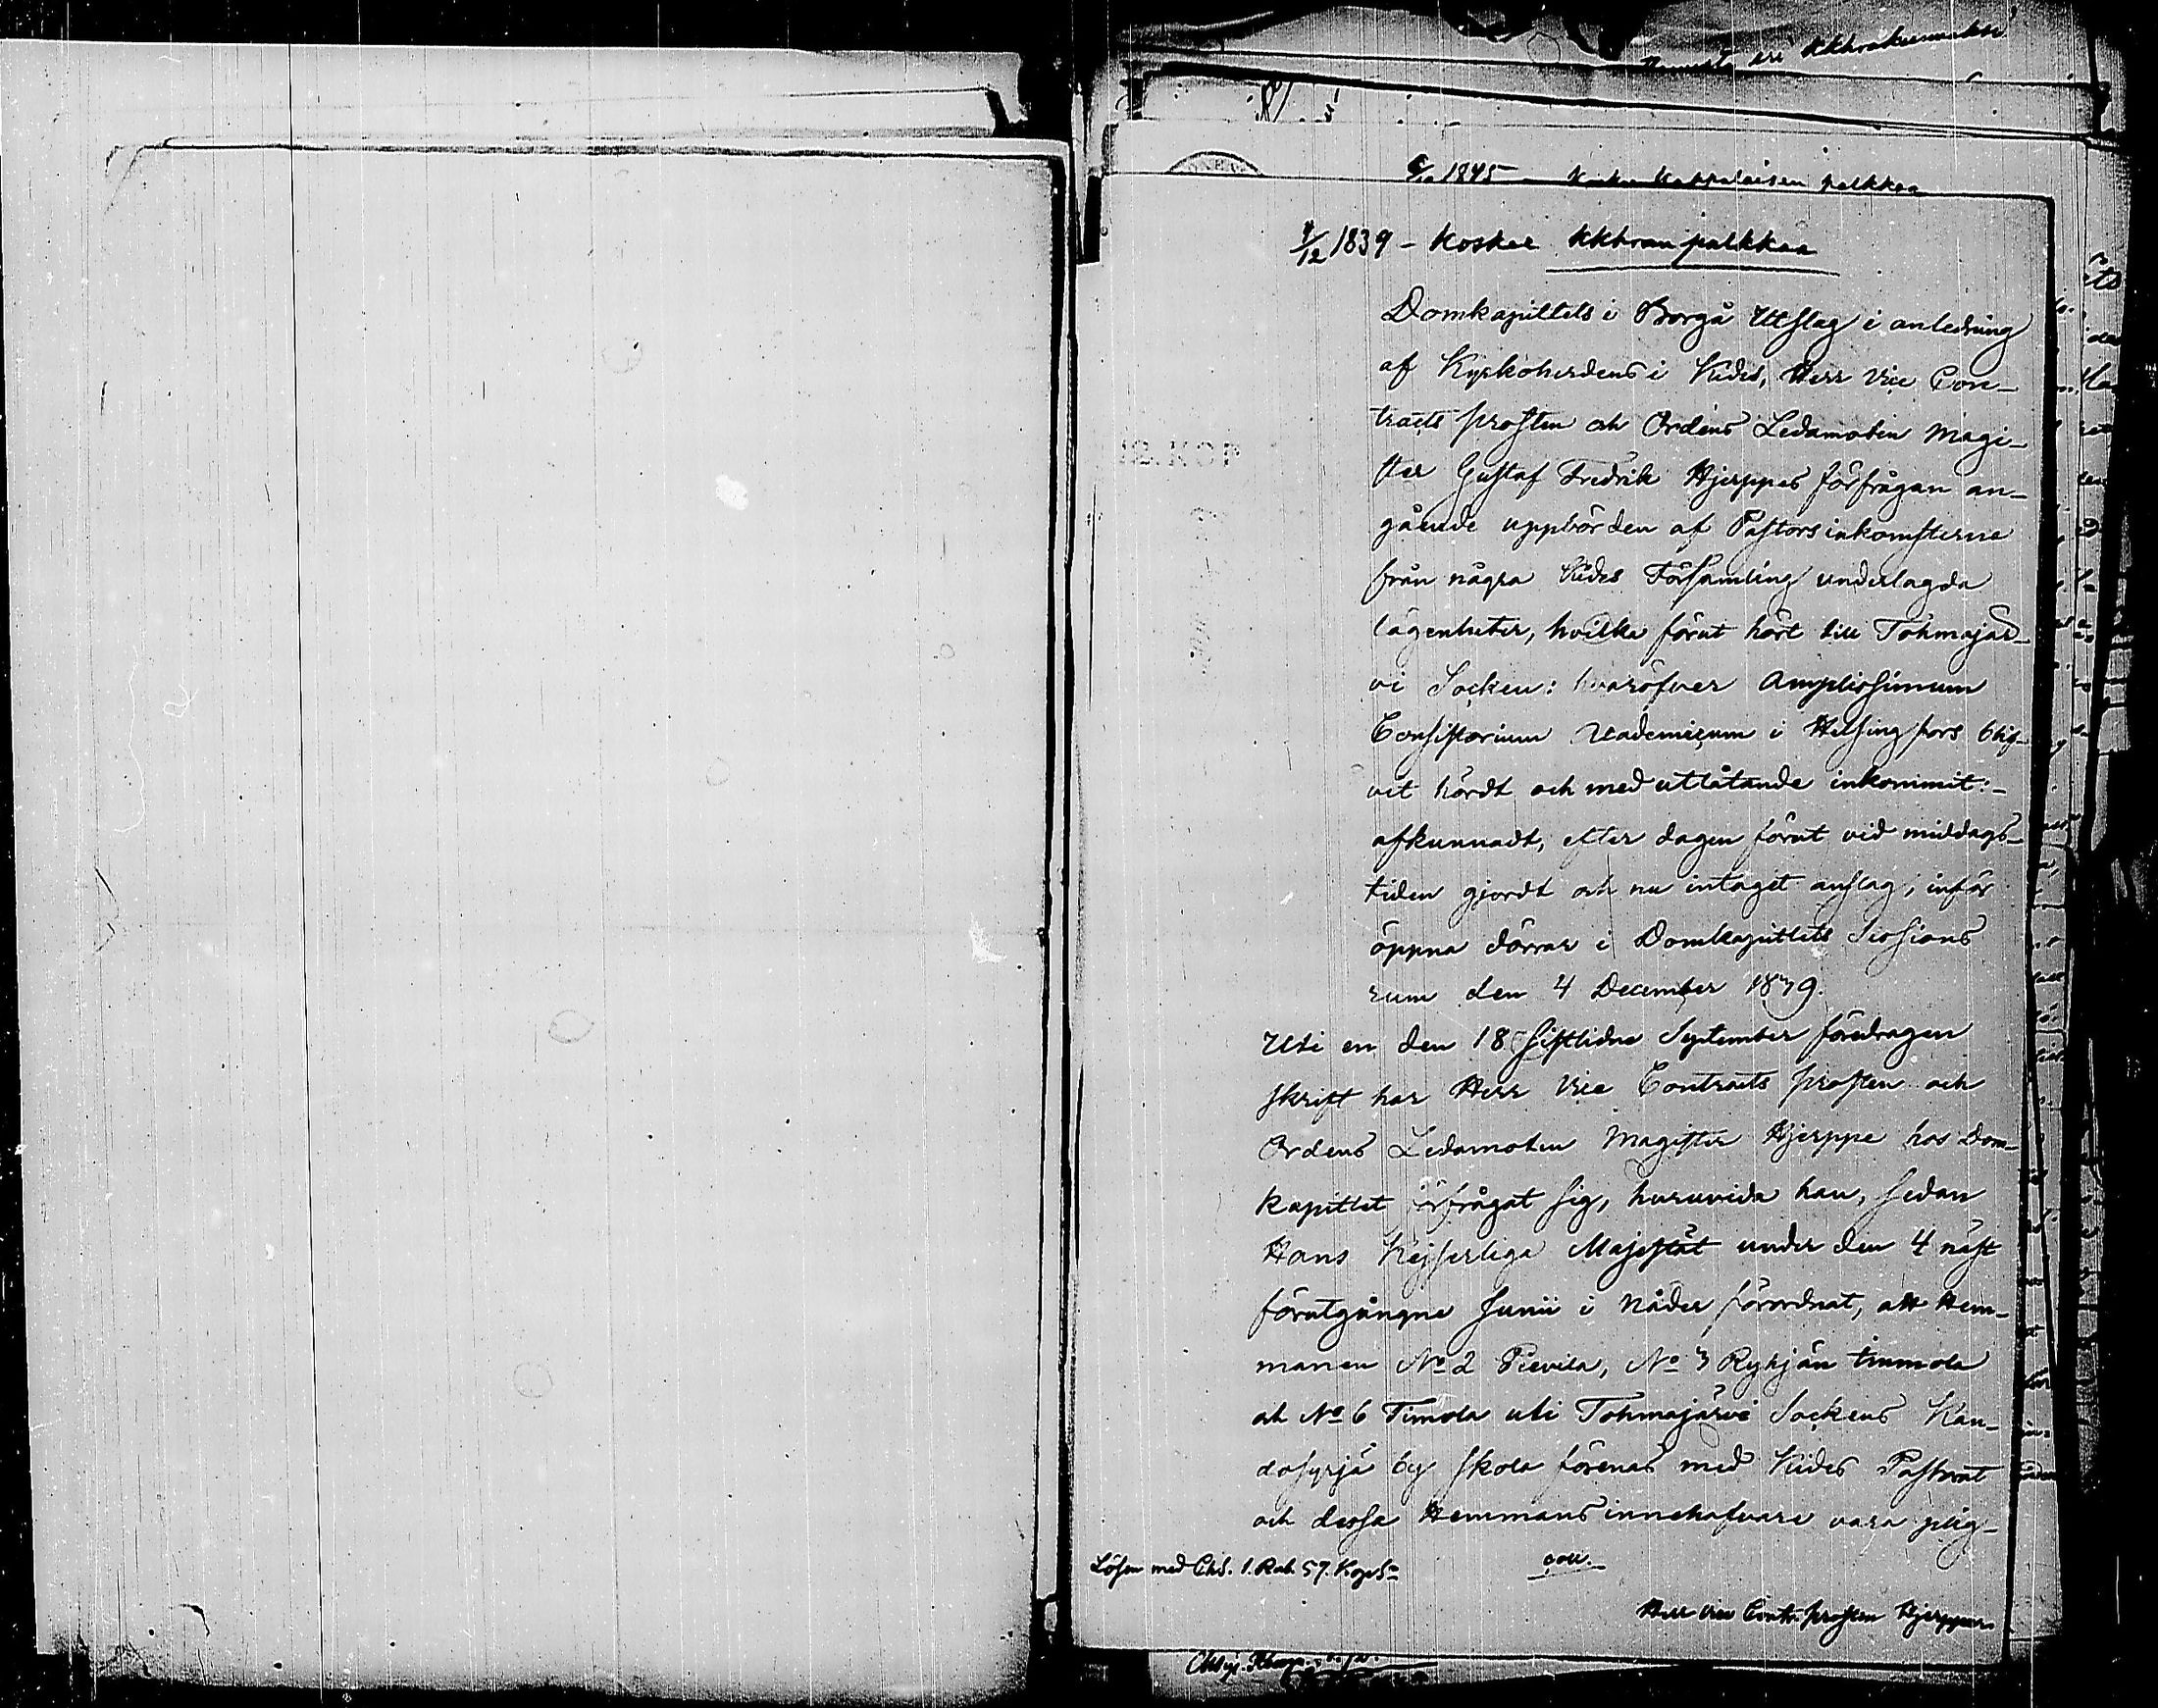 6/10 1845 - Koskee Kappalaisen palkkaa
4/12 1839 - Koskee Kkhran palkkaa
Domkapittels i Borgå Utslag i anledning
af Kyrkoherdens i Kides, Herr Vice Con-
tracts prosten och Ordens Ledamoten Magi-
ster Gustaf Fredrik Hjerppes förfrågan an-
gående uppbörden af Pastors inkomsterne
från några Kides Församling underlagda
lägenheter, hvilka förut hört till Tohmajär-
vi Socken: hvaröfver Amplissimum
Consistorium Academicum i Helsingfors blif-
vit hördt och med utlåtande inkommit:-
afkunnadt, efter dagen förut vid middags-
tiden gjordt och nu intaget anslag, inför
öppna dörrar i Domkapittlets Sessions
rum den 4 December 1839.
Uti en den 18 sistlidne September föredragen
skrift har Herr Vice Contracts prosten och
Ordens Ledamoten Magister Hjerppe hos Dom-
kapitlet förfrågat sig, huruvida han, sedan
Hans Kejserliga Majestät under den 4 näst
förutgångne Junii i Nåder förordnat, att Hem-
manen No 2 Pievila, No 3 Ryhjän timola
och No 6 Timola uti Tohmajärvi Sockens Kan-
dosyrjä by skola förenas med Kides Pastorat
och dessa Hemmans innehafvare vara plig-
Lösen med Chs. 1. Rub. 57. Kop Sr
Herr Vice Contr. prosten Hjerppe